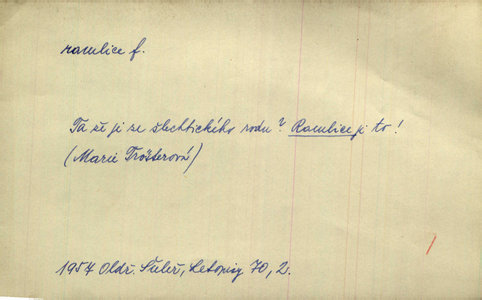 ramlice f.
Ta že je ze šlechtického rodu? Ramlice je to!
(Marie Trösterová)
1954 Oldř. Šuleř, Letopisy 70, 2.